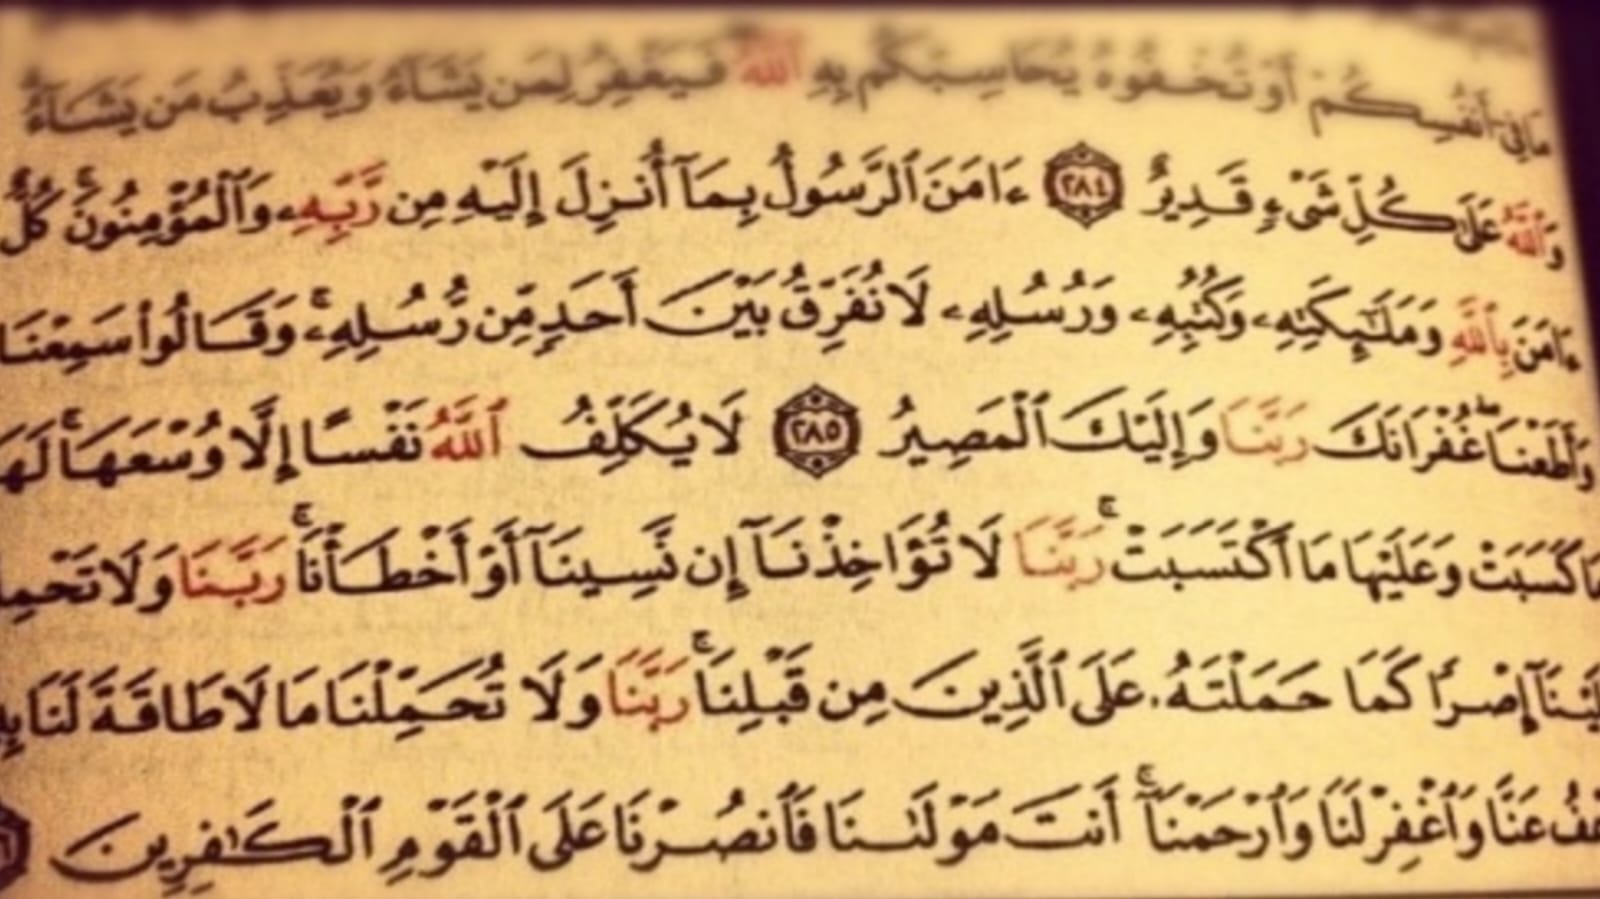 مَا فِىٓ أَنفُسِكُمْ أَوْ تُخْفُوهُ يُحَاسِبْكُم بِهِ ٱللَّهُ فَيَغْفِرُ لِمَن يَشَآءُ وَيُعَذِّبُ مَن يَشَآءُ
وَٱللَّهُ عَلَىٰ كُلِّ شَىْءٍ قَدِيرٌ ٢٨٤ ءَامَنَ ٱلرَّسُولُ بِمَآ أُنزِلَ إِلَيْهِ مِن رَّبِّهِۦ وَٱلْمُؤْمِنُونَ ۚ كُلٌّ
ءَامَنَ بِٱللَّهِ وَمَلَـٰٓئِكَتِهِۦ وَكُتُبِهِۦ وَرُسُلِهِۦ لَا نُفَرِّقُ بَيْنَ أَحَدٍ مِّن رُّسُلِهِۦ ۚ وَقَالُوا۟ سَمِعْنَا
وَأَطَعْنَا ۖ غُفْرَانَكَ رَبَّنَا وَإِلَيْكَ ٱلْمَصِيرُ ٢٨٥ لَا يُكَلِّفُ ٱللَّهُ نَفْسًا إِلَّا وُسْعَهَا ۚ لَهَا
مَا كَسَبَتْ وَعَلَيْهَا مَا ٱكْتَسَبَتْ ۗ رَبَّنَا لَا تُؤَاخِذْنَآ إِن نَّسِينَآ أَوْ أَخْطَأْنَا ۚ رَبَّنَا وَلَا تَحْمِ
لَيْنَآ إِصْرًا كَمَا حَمَلْتَهُۥ عَلَى ٱلَّذِينَ مِن قَبْلِنَا ۚ رَبَّنَا وَلَا تُحَمِّلْنَا مَا لَا طَاقَةَ لَنَا بِهِ
عْفُ عَنَّا وَٱغْفِرْ لَنَا وَٱرْحَمْنَآ ۚ أَنتَ مَوْلَىٰنَا فَٱنصُرْنَا عَلَى ٱلْقَوْمِ ٱلْكَـٰفِرِينَ